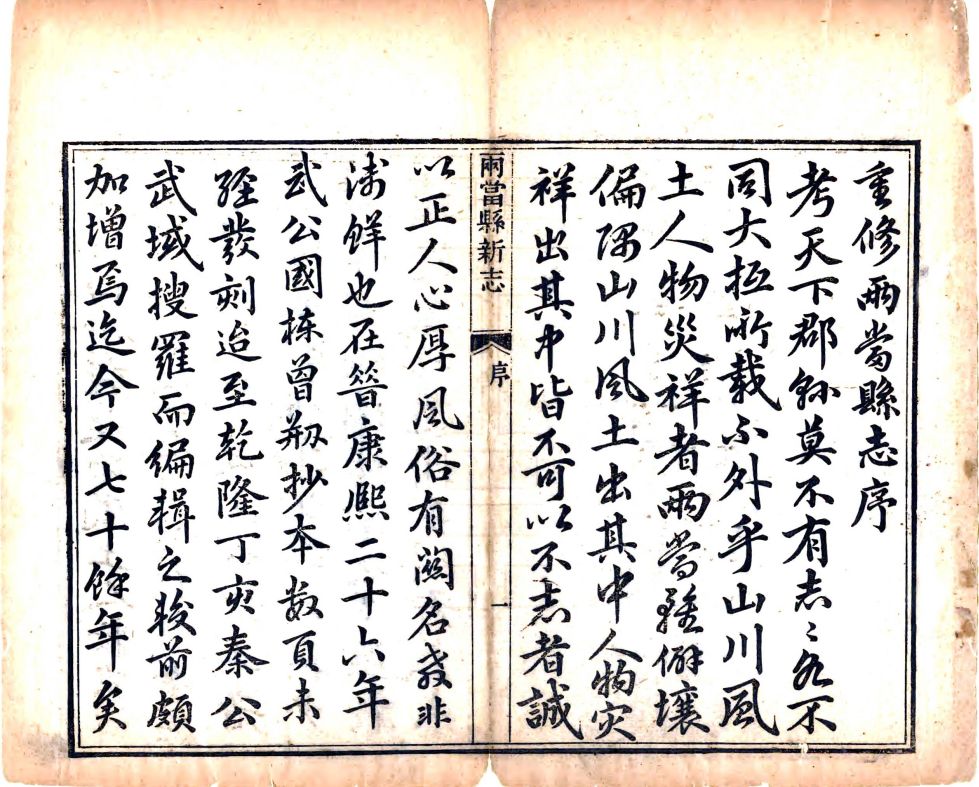 重修兩當縣志序
考天下郡縣莫不有志〻各不
同大抵所載不外乎山川風
土人物災祥者兩當雖僻壤
偏隅山川风土出其中人物灾
祥出其中皆不可以不志者誠
兩當縣新志
序
一
以正人心厚风俗有關名教非
淺鮮也在昔康熙二十六年
武公國棟曾剏抄本数頁未
經發刻迨至乾隆丁亥秦公
武域搜羅而編輯之較前頗
加增焉迄今又七十餘年矣